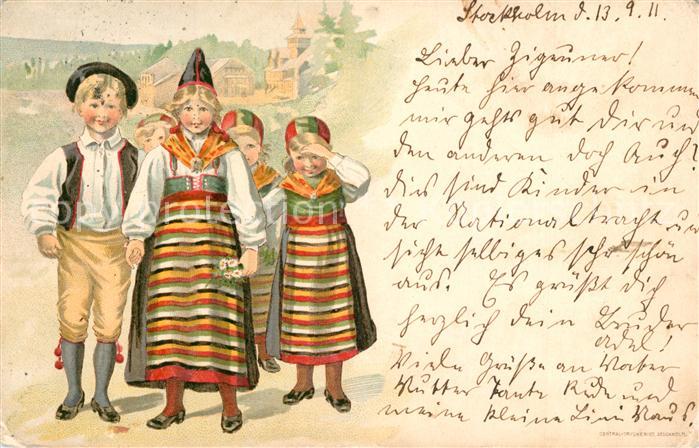 Stockholm d. 13. 9. 11.
Lieber Zigeuner!
Heute hier angekommen
mir gehts gut Dir und
den anderen doch Auch?
Dies sind Kinder in
der Nationaltracht u
sieht selbiges sehr schön
aus. Es grüßt dich
herzlich dein Bruder
Adel!
Viele Grüße an Vater
Mutter Tante und
meine kleine Lini Maus
CENTRAL-TRYCKERIET, STOCKHOLM.